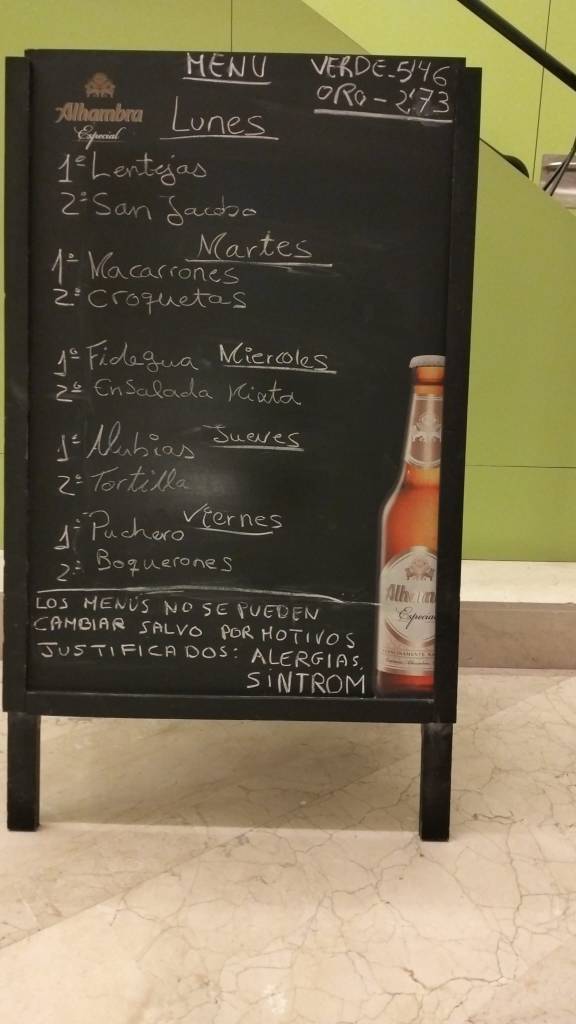 MENU VERDE-5'46
ORO-2'73
Alhambra
Especial
Lunes
1º Lentejas
2º San Jacobo
Martes
1º Macarrones
2º Croquetas
Miercoles
1º Fidegua
2º Ensalada Mixta
Jueves
1º Alubias
2º Tortilla
Viernes
1º Puchero
2º Boquerones
LOS MENÚS NO SE PUEDEN
CAMBIAR SALVO POR MOTIVOS
JUSTIFICADOS: ALERGIAS,
SINTROM
Alham
Especial